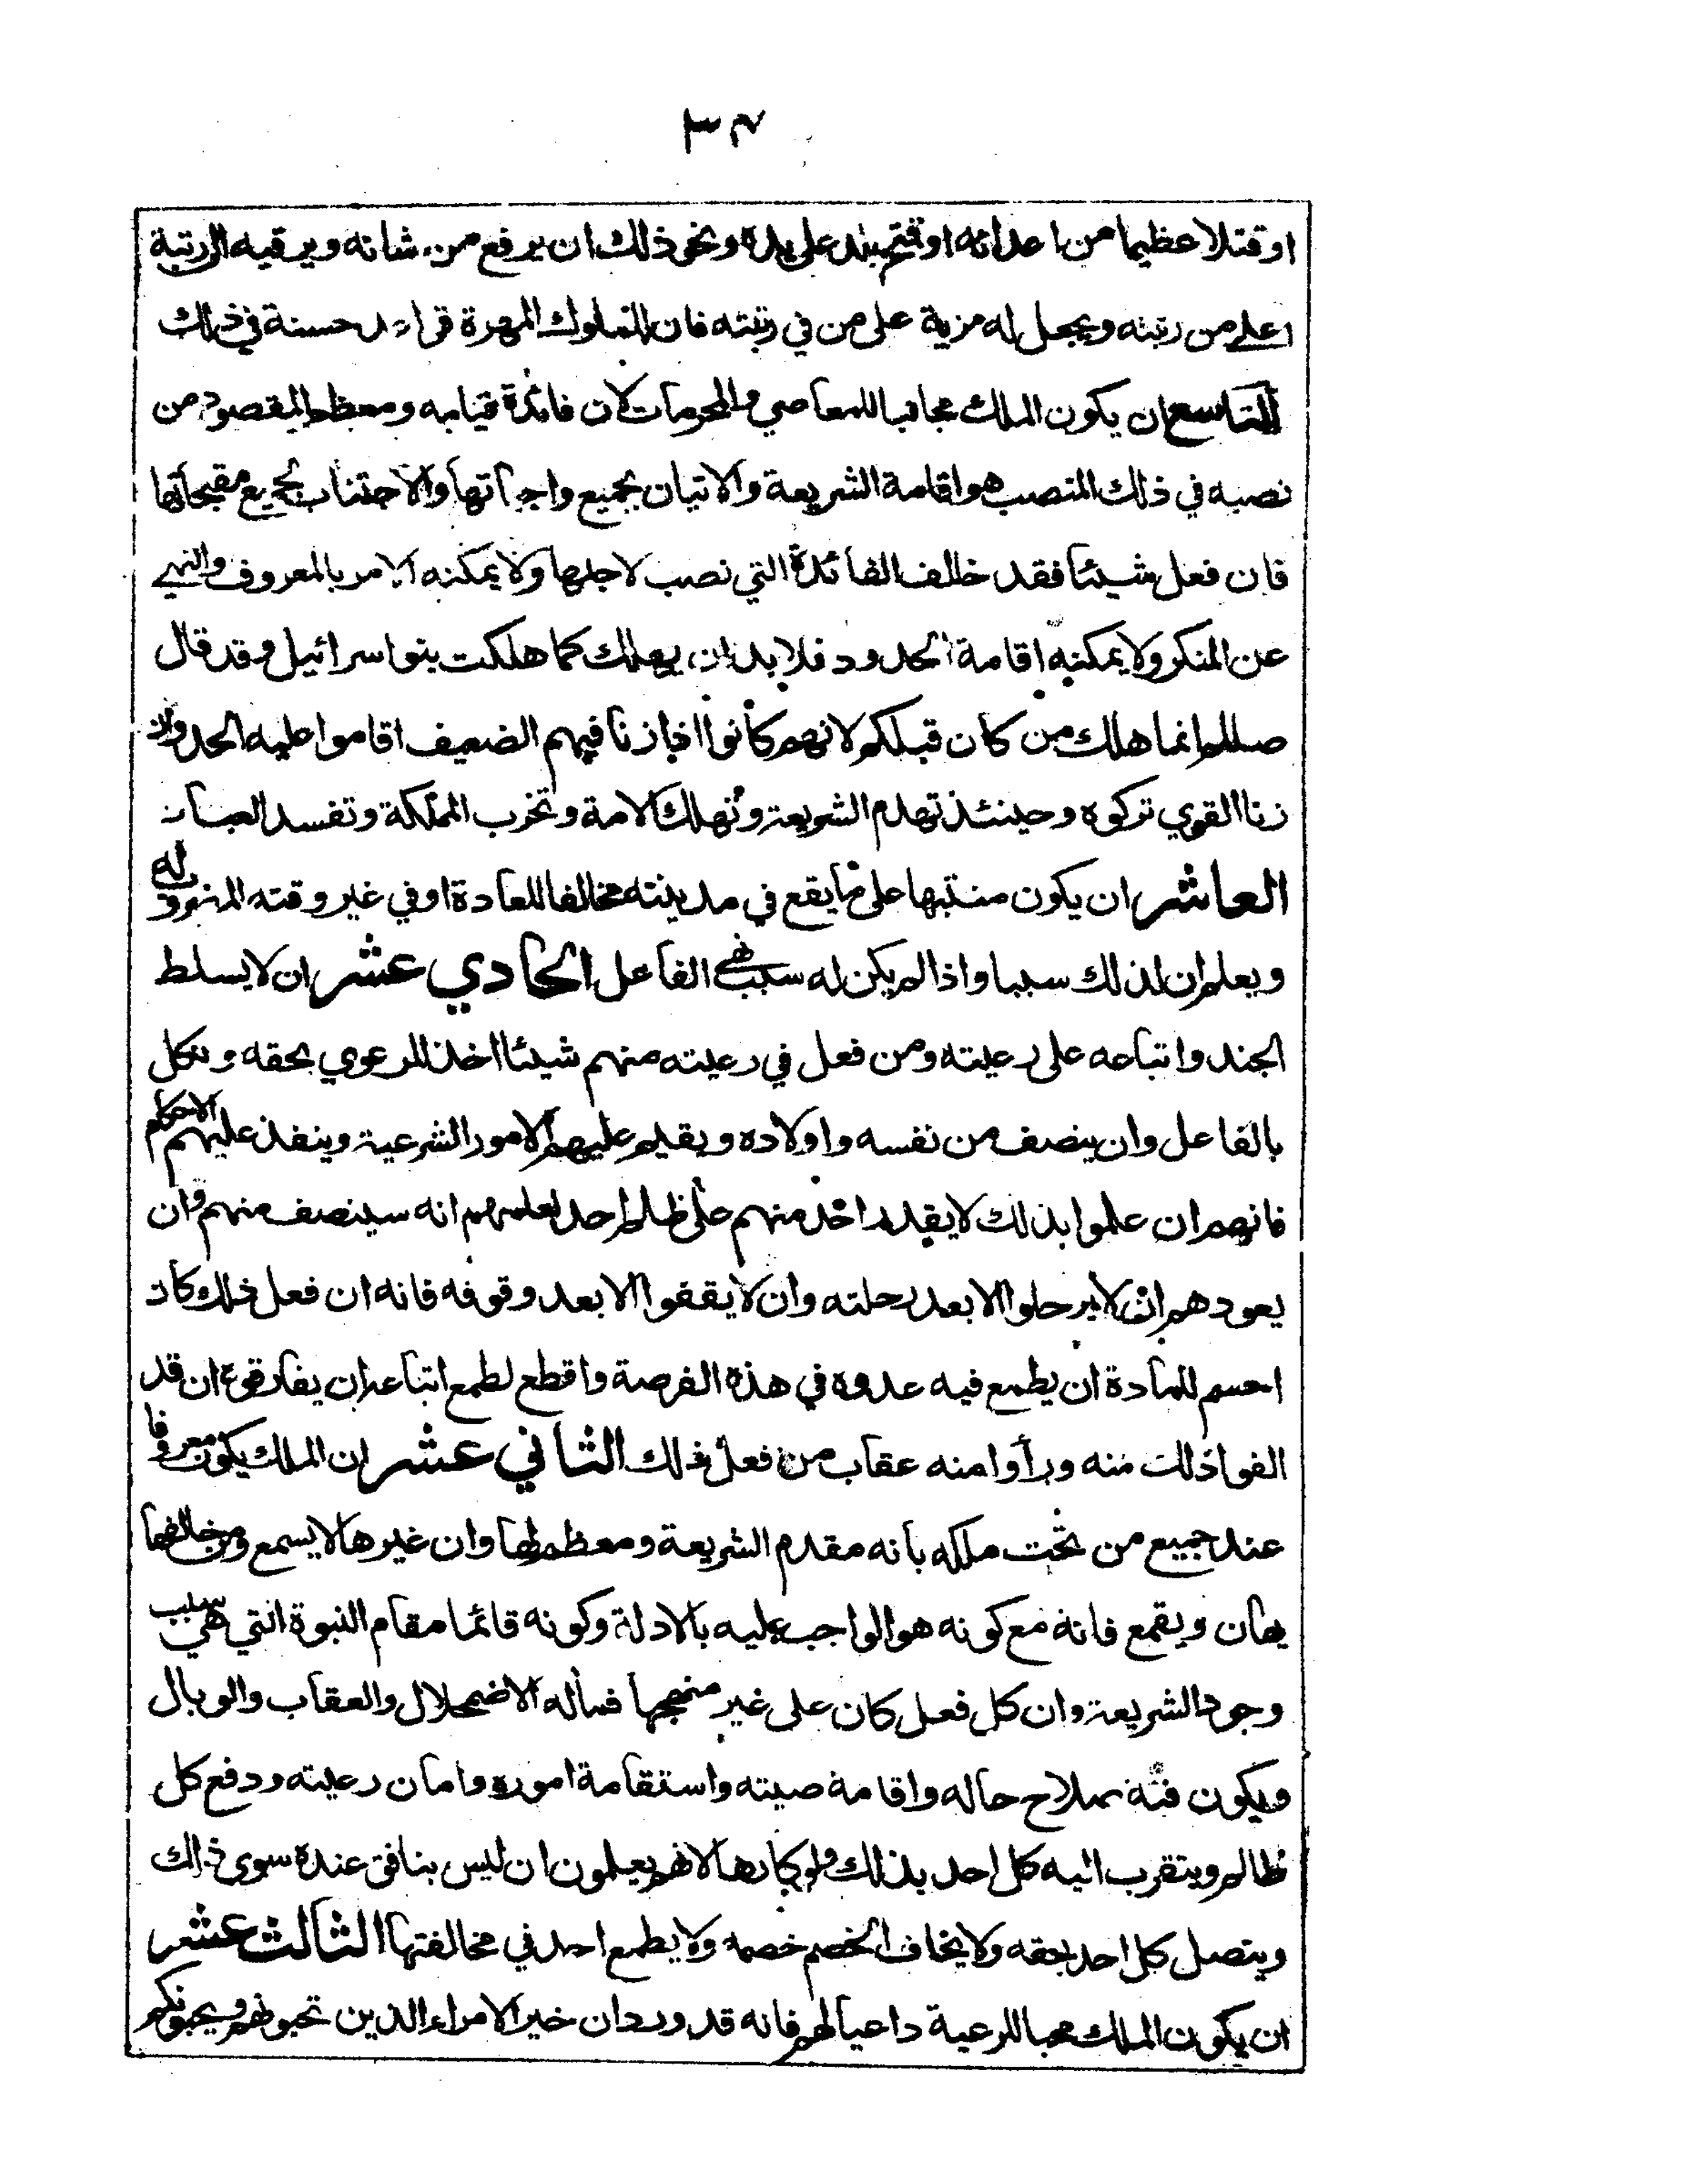 ٣٤
او قتل عظيما من اعدائه او فتح بلد على يده ونحو ذلك ان يرفع من شانه ويرقيه الى رتبة
اعلى من رتبته ويجعل له مزية على من في رتبته فان للملوك المهرة حسنة في ذلك
التاسع ان يكون الملك مجانبا للمعاصي والمحرمات لان فائدة قيامه ومعظم المقصود من
نصبه في ذلك المنصب هو اقامة الشريعة والاتيان بجميع واجباتها والاجتناب بجميع مقبحاتها
فان فعل شيئا فقد خالف الفائدة التي نصب لاجلها ولا يمكنه الامر بالمعروف والنهي
عن المنكر ولا يمكنه اقامة الحدود فلا بد ان يهلك كما هلكت بنوا سرائيل وقد قال
صللم انما هلك من كان قبلكم لانهم كانوا اذا زنا فيهم الضعيف اقاموا عليه الحد واذ
زنا القوي تركوه وحينئذ تهدم الشريعة وتهلك الامة وتخرب المملكة وتفسد العباد
العاشر ان يكون منتبها على ما يقع في مدينته مخالفا للعادة او في غير وقته له
ويعلم ان لذلك سببا واذا لم يكن له سبب نهى الفاعل الحادي عشر ان لا يسلط
الجند واتباعه على رعيته ومن فعل في رعيته منهم شيئا اخذ للرعوي بحقه ونكل
بالفاعل وان ينصف من نفسه واولاده ويقيم عليهم الامور الشرعية وينفذ عليهم الاحكام
فانهم ان علموا بذلك لا يقدر احد منهم على ظلم احد لعلمهم انه سينصف منهم وان
يعودهم ان لا يرحلوا الا بعد رحلته وان لا يقفوا الا بعد وقوفه فانه ان فعل ذلك كان
احسم للمادة ان يطمع فيه عدوه في هذة الفرصة واقطع لطمع اتباعه ان يفارقوه ان قد
الفوا ذلك منه ورأوا منه عقاب من فعل ذلك الثاني عشر ان الملك يكون معروفا
عند جميع من تحت ملكه بانه مقدم الشريعة ومعظم لها وان غيرها لا يسمع ومن خالفها
يهان ويقمع فانه مع كونه هو الواجب عليه بالادلة وكونه قائما مقام النبوة التي هي سبب
وجود الشريعة وان كل فعل كان على غير منهجها فماله الاضمحلال والعقاب والوبال
ويكون فيه صلاح حاله واقامة صيته واستقامة اموره وامان رعيته ودفع كل
ظالم ويتقرب اليه كل احد بذلك ولو كارها لانهم يعلمون ان ليس بنافق عندة سوى ذلك
ويتصل كل احد بحقه ولا يخاف الخصم خصمه ولا يطمع احد في مخالفتها الثالث عشر
ان يكون الملك محبا للرعية داعيا لهم فانه قد ورد ان خير الامراء الذين تحبونهم ويحبونكم